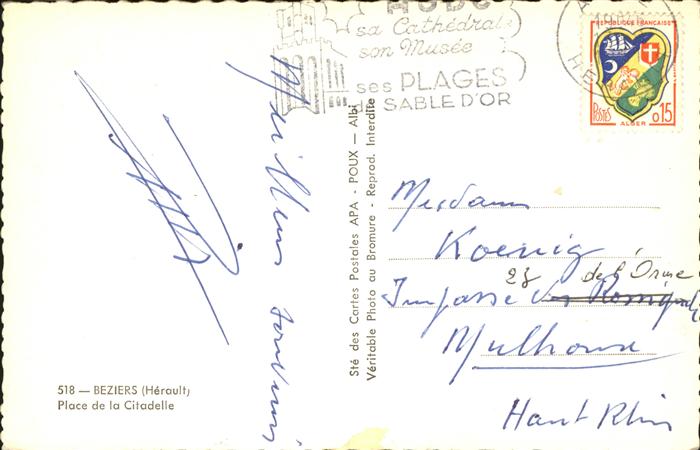 sa Cathédrale
son Musée
ses PLAGES
SABLE D'OR
REPUBLIQUE FRANÇAISE
POSTES
ALGER
0,15
Meilleurs souvenirs
Sté des Cartes Postales APA - POUX - Albi
Véritable Photo au Bromure - Reprod. Interdite
Mesdames
Koenig
28 de l'Orme
Impasse
Mulhouse
Haut Rhin
518 — BEZIERS (Hérault)
Place de la Citadelle